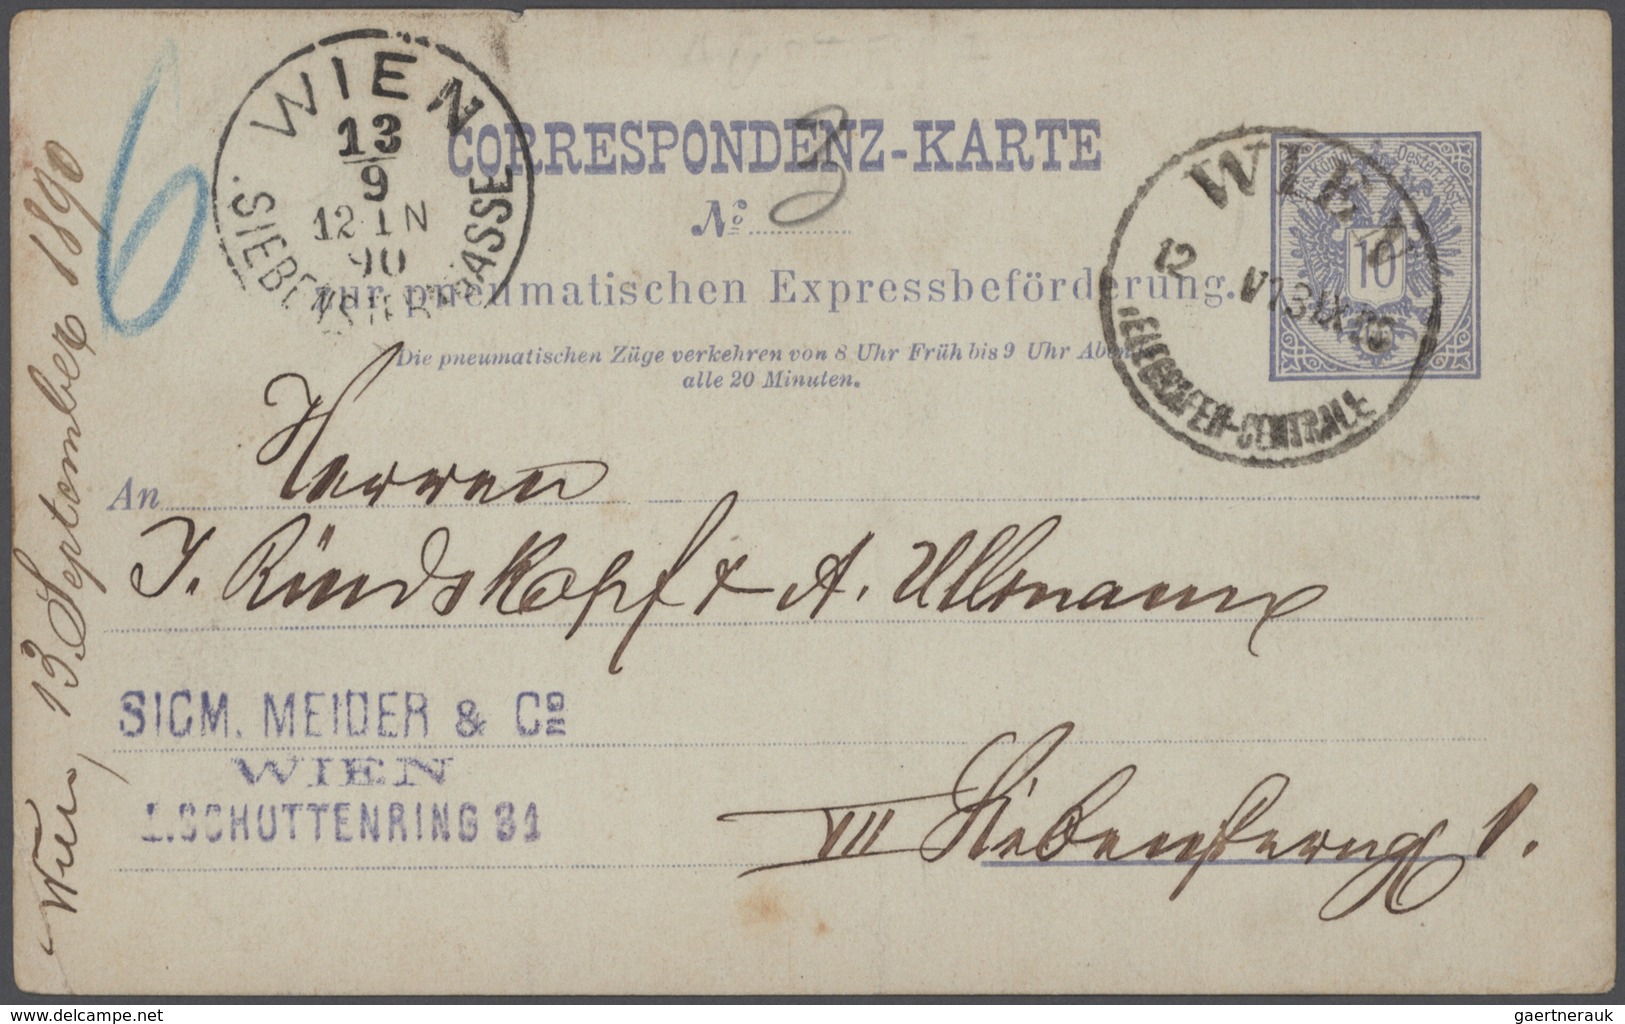 6
WIEN
13
9
12·1N
90
SIEBENSTERNGASSE
CORRESPONDENZ-KARTE
No. 3
zur pneumatischen Expressbeförderung.
Die pneumatischen Züge verkehren von 8 Uhr Früh bis 9 Uhr Abends
alle 20 Minuten.
Kais. Königl. Oesterr. Post
10
WIEN
12 V 13 IX 90
TELEGRAFEN-CENTRALE
An Herren
J. Rindskopf & A. Ullmann
VII Siebensterng 1.
SIGM. MEIDER & Co
WIEN
I. SCHOTTENRING 31
Wien, 13 September 1890
delcampe.net
gaertnerauk